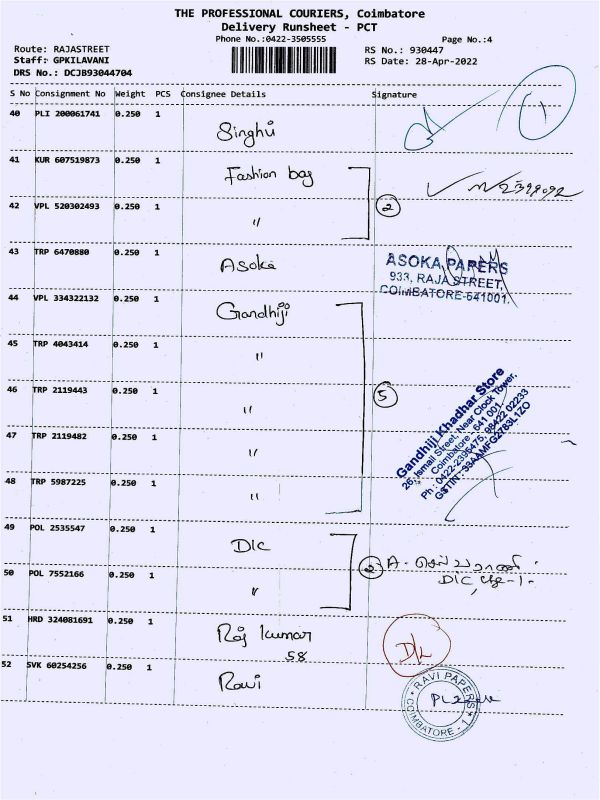 THE PROFESSIONAL COURIERS, Coimbatore
Delivery Runsheet - PCT
Phone No.:0422-3505555
Page No.:4
Route: RAJASTREET
RS No.: 930447
Staff: GPKILAVANI
RS Date: 28-Apr-2022
DRS No.: DCJB93044704
S No Consignment No Weight PCS Consignee Details Signature
40 PLI 200061741 0.250 1 Singhvi
1
41 KUR 607519873 0.250 1 Fashion bag
2
42 VPL 520302493 0.250 1 "
43 TRP 6470880 0.250 1 Asoka
ASOKA PAPERS
933, RAJA STREET,
COIMBATORE-641001.
44 VPL 334322132 0.250 1 Gandhiji
45 TRP 4043414 0.250 1 "
5
46 TRP 2119443 0.250 1 "
47 TRP 2119482 0.250 1 "
48 TRP 5987225 0.250 1 "
Gandhiji Khadhar Store
26, Ismail Street, Near Clock Tower,
Coimbatore - 641 001.
Ph : 0422-2395475, 98422 02233
GSTIN - 33AAMFG2783L1ZO
49 POL 2535547 0.250 1 DLC
2
A.
DLC
50 POL 7552166 0.250 1 "
51 HRD 324081691 0.250 1 Raj kumar
58
D/L
52 SVK 60254256 0.250 1 Ravi
RAVI PAPERS
COIMBATORE - 1